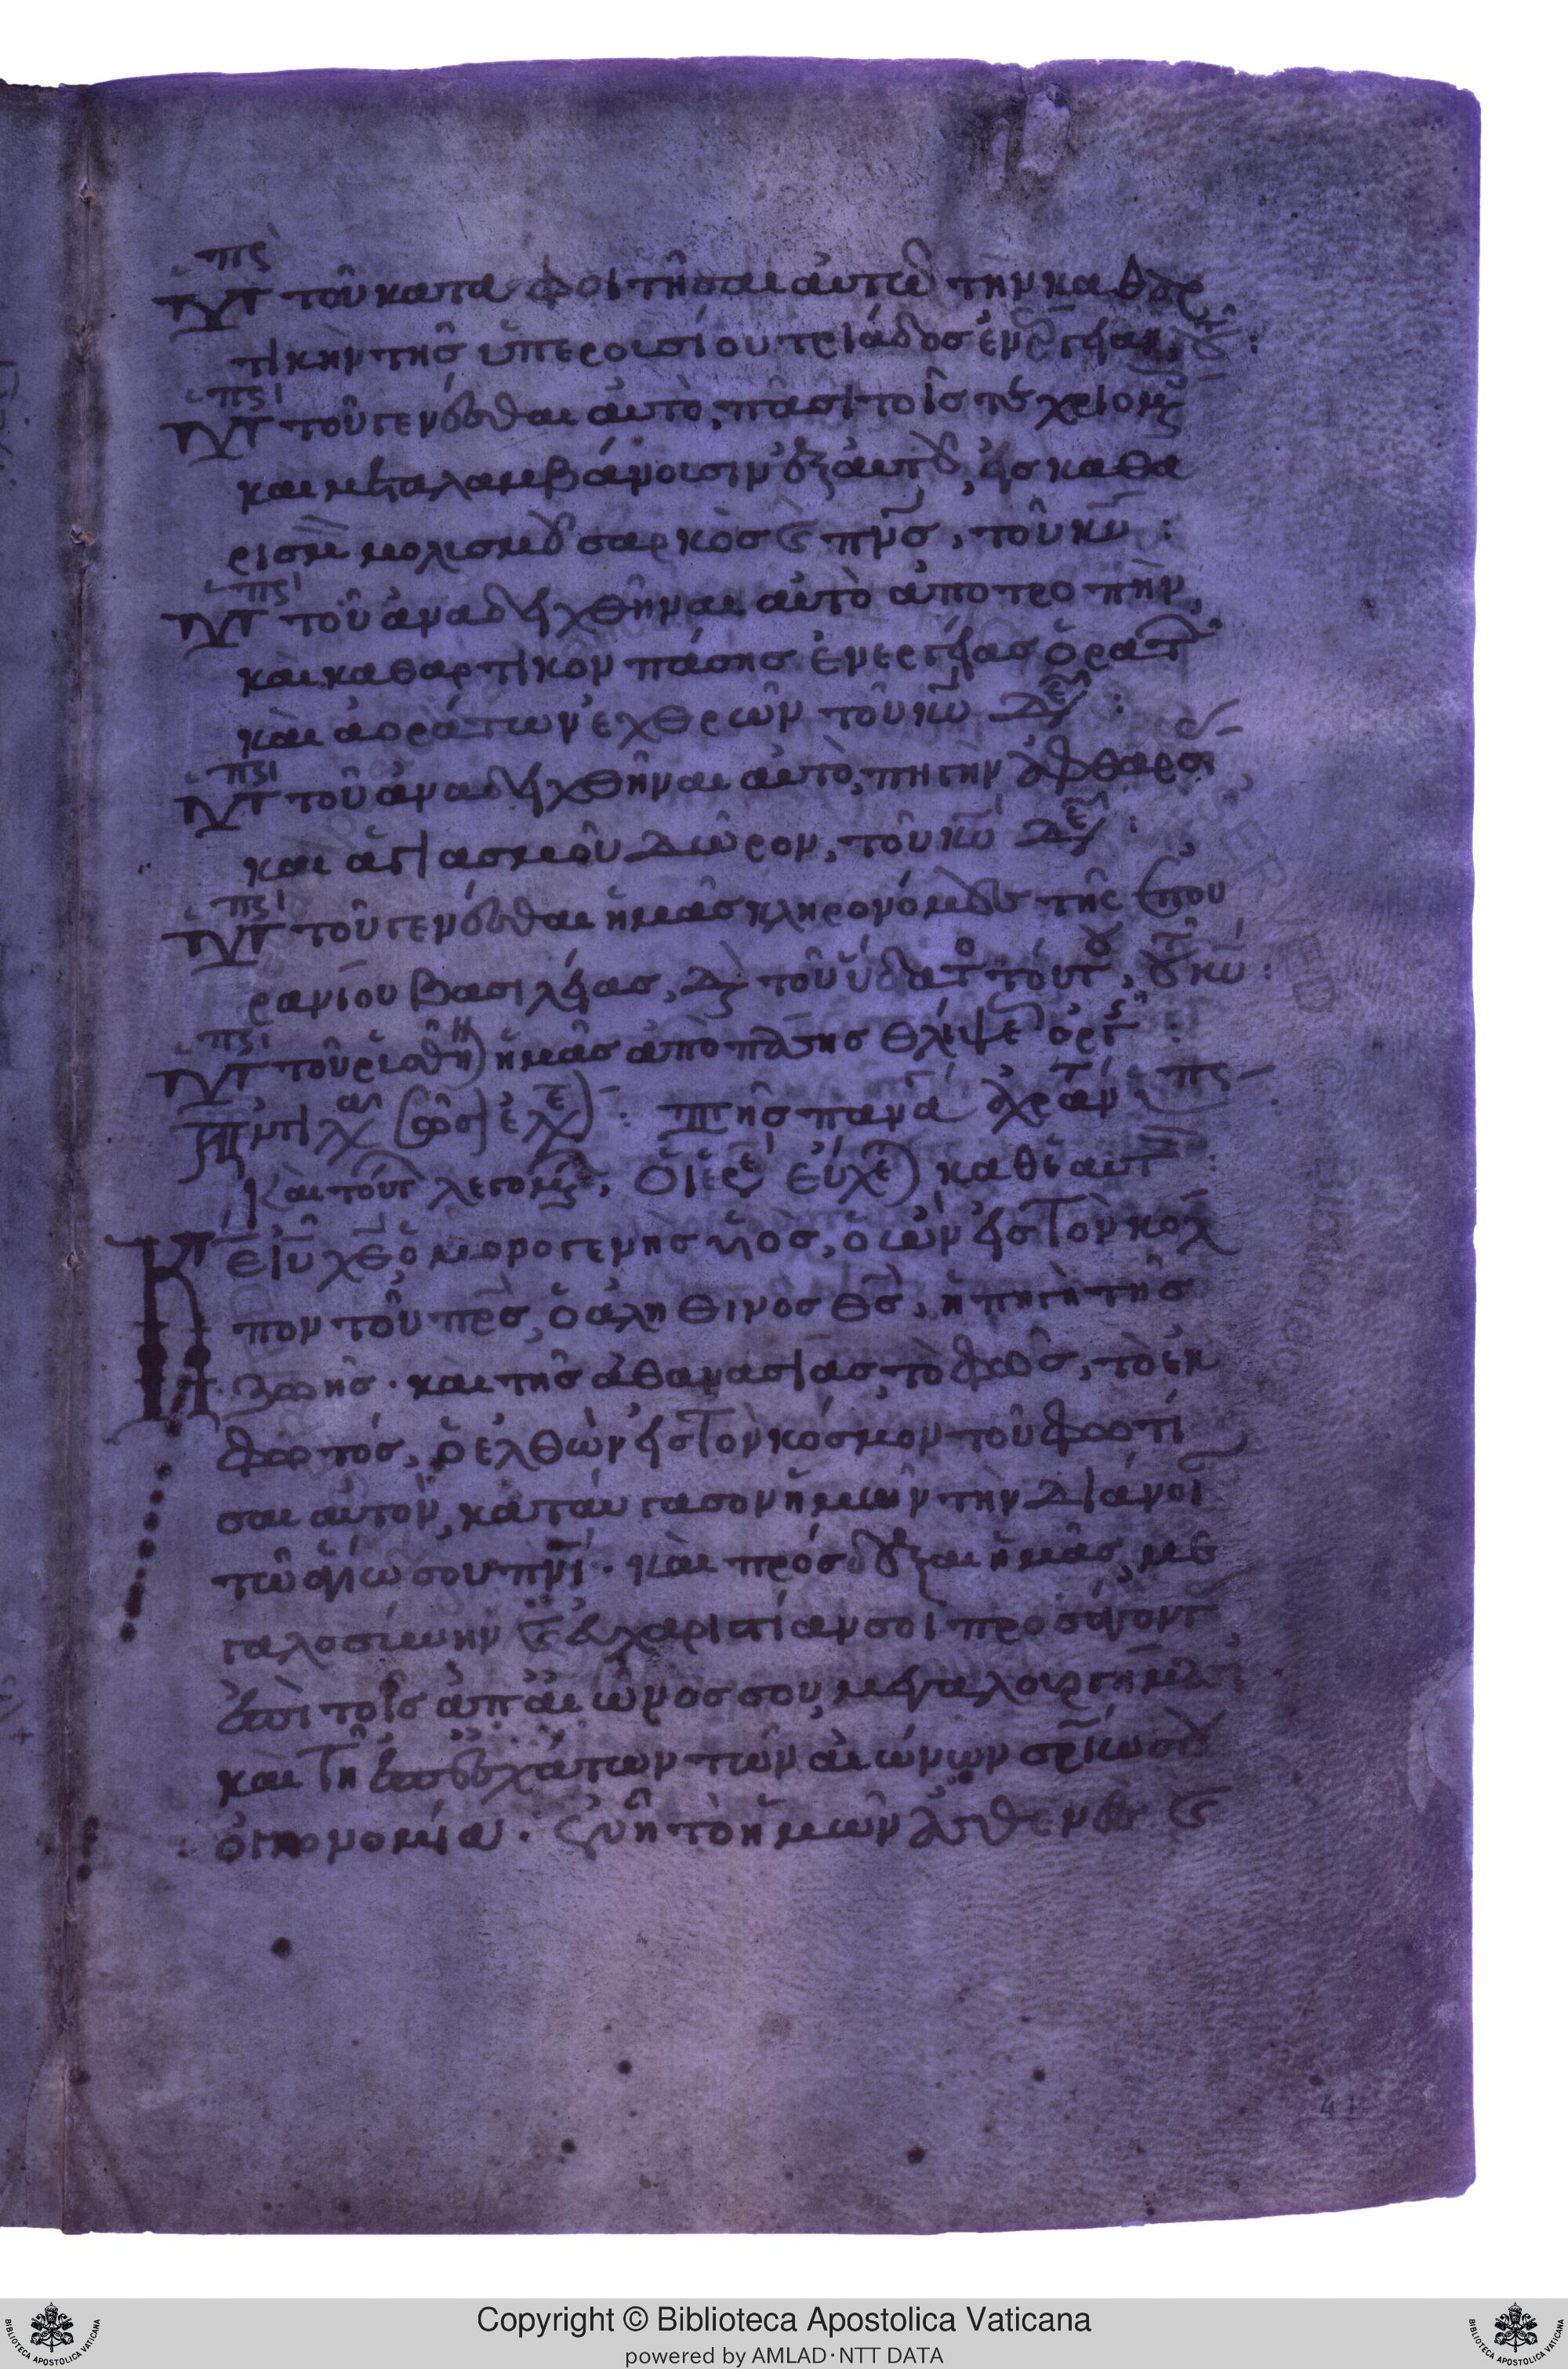 Ὑπὲρ τοῦ καταφοιτῆσαι αὐτῶ τὴν καθαρ
τικὴν τῆς ὑπερουσίου τριάδος ἐνέργειαν,
Ὑπὲρ τοῦ γενέσθαι αὐτὸ, πᾶσι τοῖς χριομ
καὶ μεταλαμβάνουσιν ἐξ αὐτοῦ, εἰς καθα
ρισμὸν μολισμοῦ σαρκὸς καὶ πνς, τοῦ κυ :
Ὑπὲρ τοῦ ἀναδειχθῆναι αὐτὸ ἀποτροπὴν,
καὶ καθαρτικὸν πάσης ἐνεργείας ὁρατ
καὶ ἀοράτων ἐχθρῶν τοῦ κυ δε :
Ὑπὲρ τοῦ ἀναδειχθῆναι αὐτὸ, πηγὴν ἀφθαρσί
καὶ ἁγιασμοῦ δῶρον, τοῦ κυ δε :
Ὑπὲρ τοῦ γενέσθαι ἡμᾶς κληρονόμους τῆς ἐπου
ρανίου βασιλείας, διὰ τοῦ ὕδατ τούτ, τοῦ κυ :
Ὑπὲρ τοῦ ῥυσθῆναι ἡμᾶς ἀπὸ πάσης θλίψε ὀργ :
Ἀντιλ σῶσ ἐλε : Τῆς πανα ἀχράν
Καὶ τούτ λεγομ, Ὁ ἱερ εὔχε καθ ἑαυτ :
Κε ιυ χε ὁ μονογενὴς υἱὸς, ὁ ὢν εἰς τὸν κόλ
πον τοῦ πρς, ὁ ἀληθινὸς θς, ἡ πηγὴ τῆς
ζωῆς · καὶ τῆς ἀθανασίας, τὸ φῶς, τὸ ἐκ
φωτός, ὁ ἐλθὼν εἰς τὸν κόσμον τοῦ φωτί
σαι αὐτὸν, καταύγασον ἡμῶν τὴν διάνοι
τῶ ἁγίω σου πνι · καὶ πρόσδεξαι ἡμᾶς, με
γαλοσύνην καὶ εὐχαριστίαν σοι προσάγοντ
ἐπὶ τοῖς ἀπ αἰῶνος σου, μεγαλουργήμα
καὶ τῆ ἐπ ἐσχάτων τῶν αἰώνων σου
οἰκονομία · ἐν ἧ τὸ ἡμῶν ἀσθενὲς καὶ
41
Copyright © Biblioteca Apostolica Vaticana
powered by AMLAD·NTT DATA